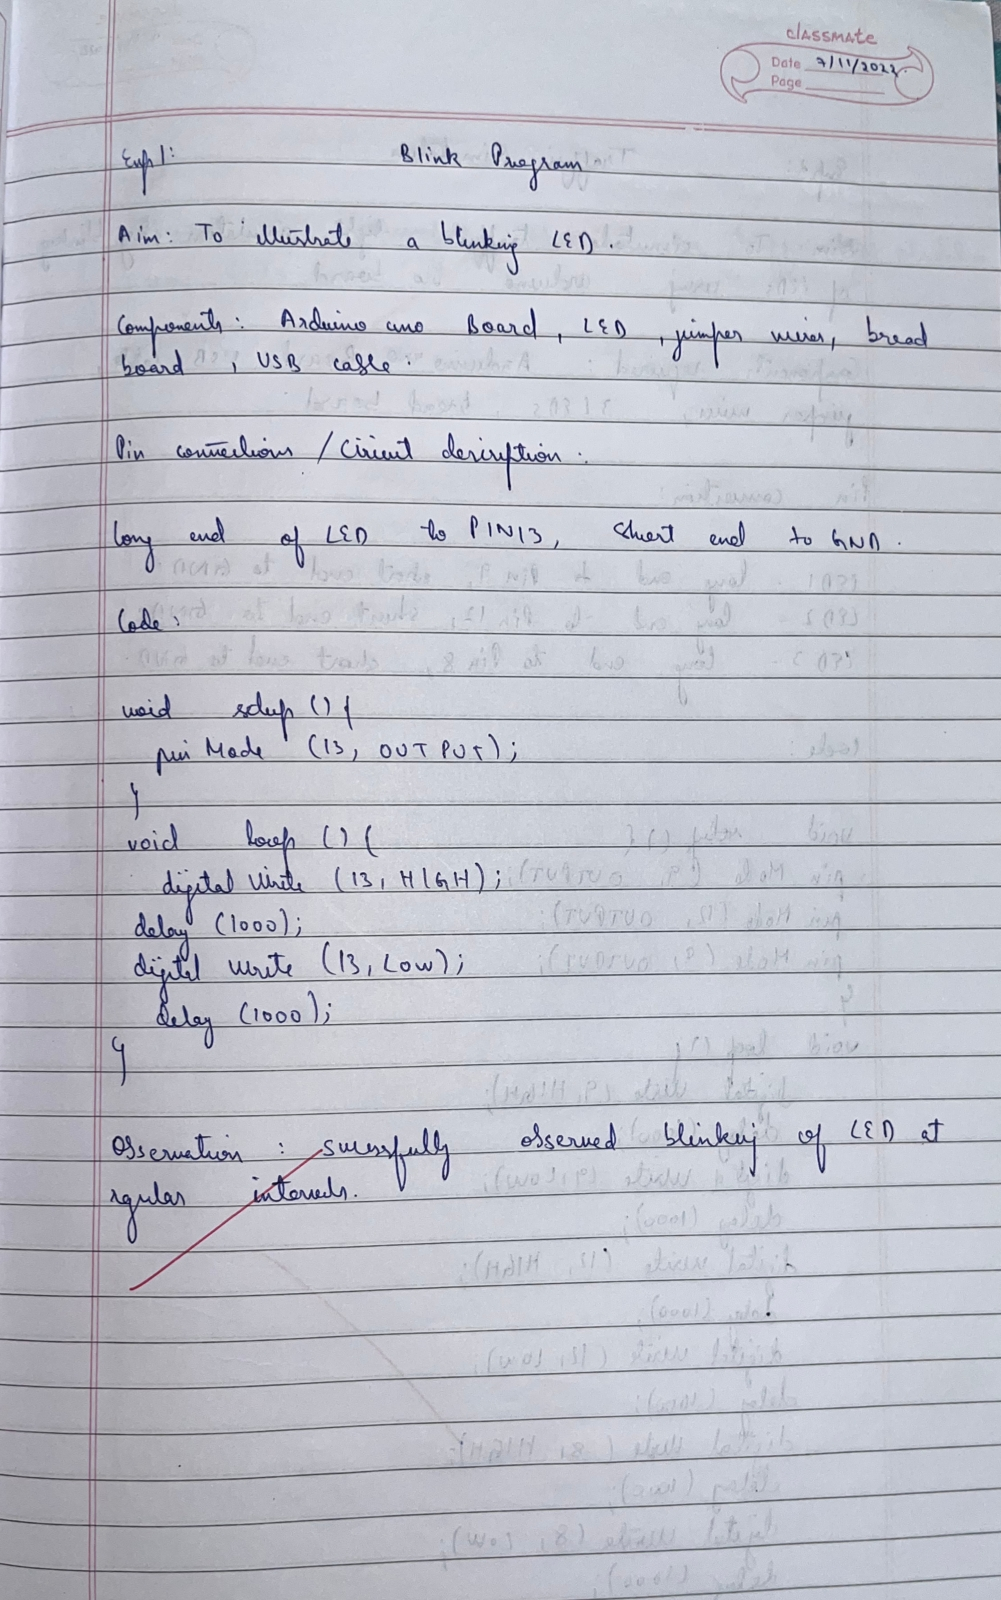 classmate
Date 7/11/2022
Page
Exp 1: Blink Program
Aim: To illustrate a blinking LED.
Components: Arduino uno Board, LED, jumper wires, bread
board, USB cable.
Pin connections / Circuit description:
long end of LED to PIN13, short end to GND.
Code:
void setup () {
pin Mode (13, OUTPUT);
}
void loop () {
digital Write (13, HIGH);
delay (1000);
digital write (13, LOW);
delay (1000);
}
Observation: sucessfully observed blinking of LED at
regular intervals.